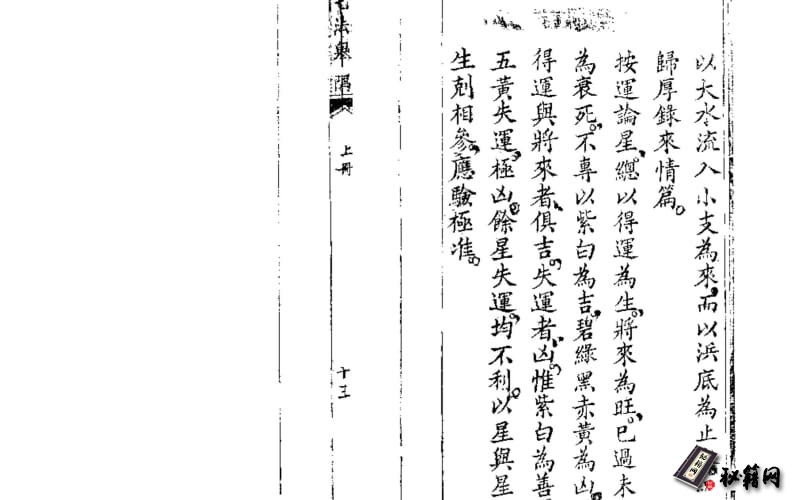 以大水流入小支為來，而以浜底為止
歸厚錄來情篇。
按運論星，總以得運為生，將來為旺，已過未
為衰死，不專以紫白為吉，碧綠黑赤黃為凶，
得運與將來者，俱吉，失運者，凶，惟紫白為善
五黃失運，極凶，餘星失運，均不利。以星與星
生剋相參，應驗極准。
宅法舉隅
上冊
十三
秘籍网